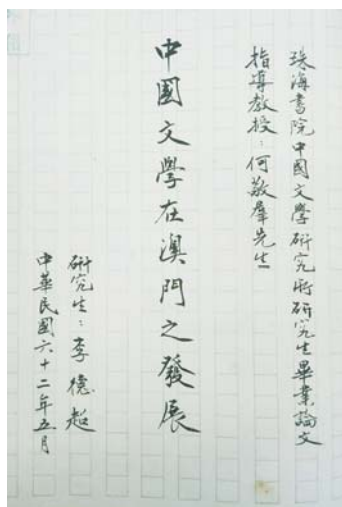 珠海書院中國文學研究所研究生畢業論文
指導教授：何敬羣先生
中國文學在澳門之發展
研究生：李德超
中華民國六十二年五月